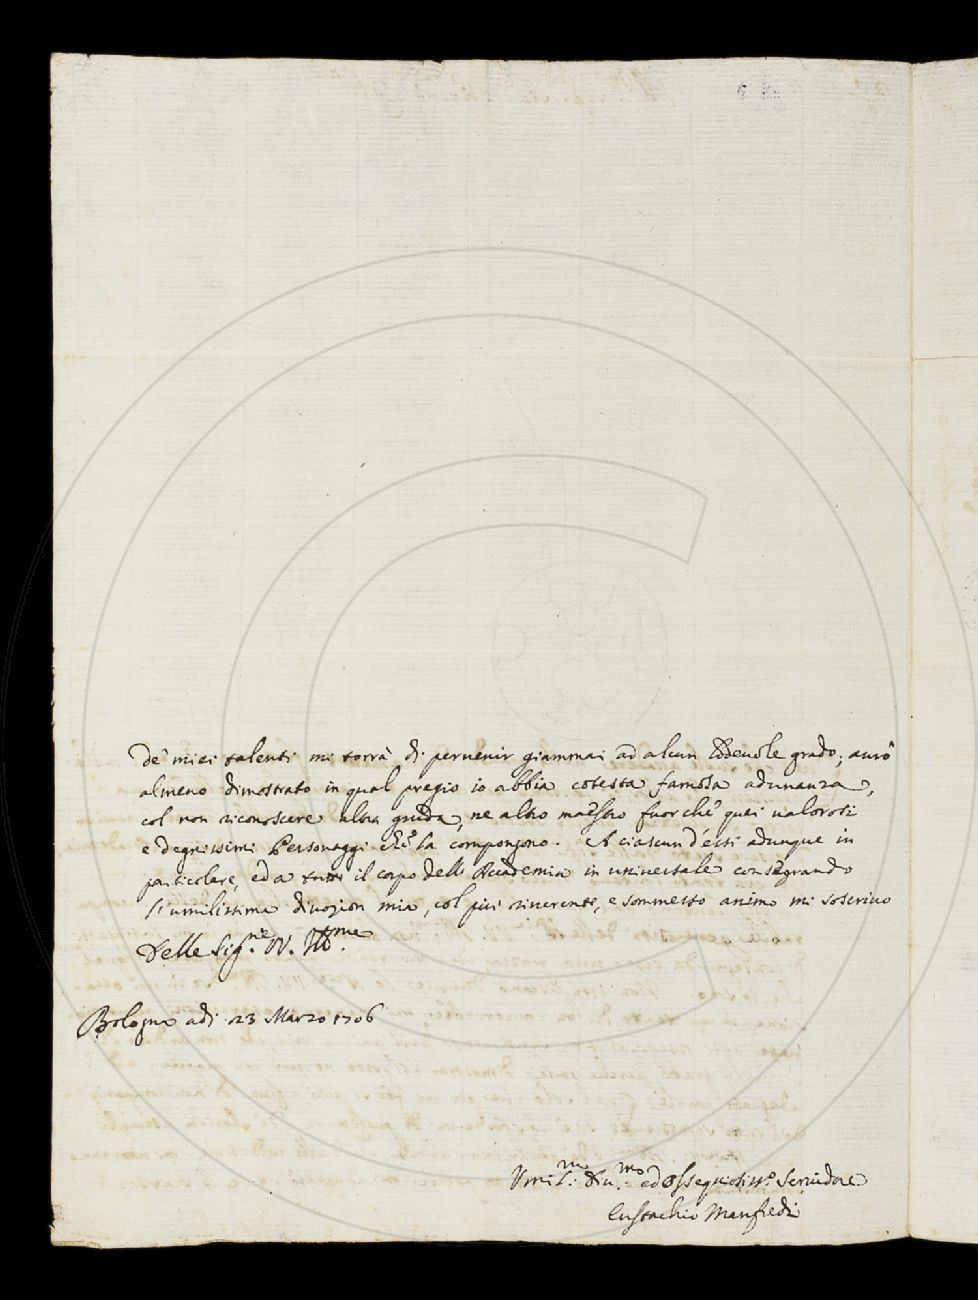 de' miei talenti mi torrà di pervenir giammai ad alcun lodevole grado, avrò
almeno dimostrato in qual pregio io abbia cotesta famosa adunanza,
col non riconoscere altra guida, ne altro maestro fuorche' quei valorosi
e degnissimi Personaggi che la compongono. A ciascun d'essi adunque in
particolare, ed a tutto il corpo dell' Accademia in universale consegrando
l'umilissima divozion mia, col più riverente, e sommesso animo mi soscrivo
Delle Sig.rie VV. Ill.me
Bologna adi 23 Marzo 1706
Vmil.mo div.mo ed Ossequiosiss.o Servidore
Eustachio Manfredi